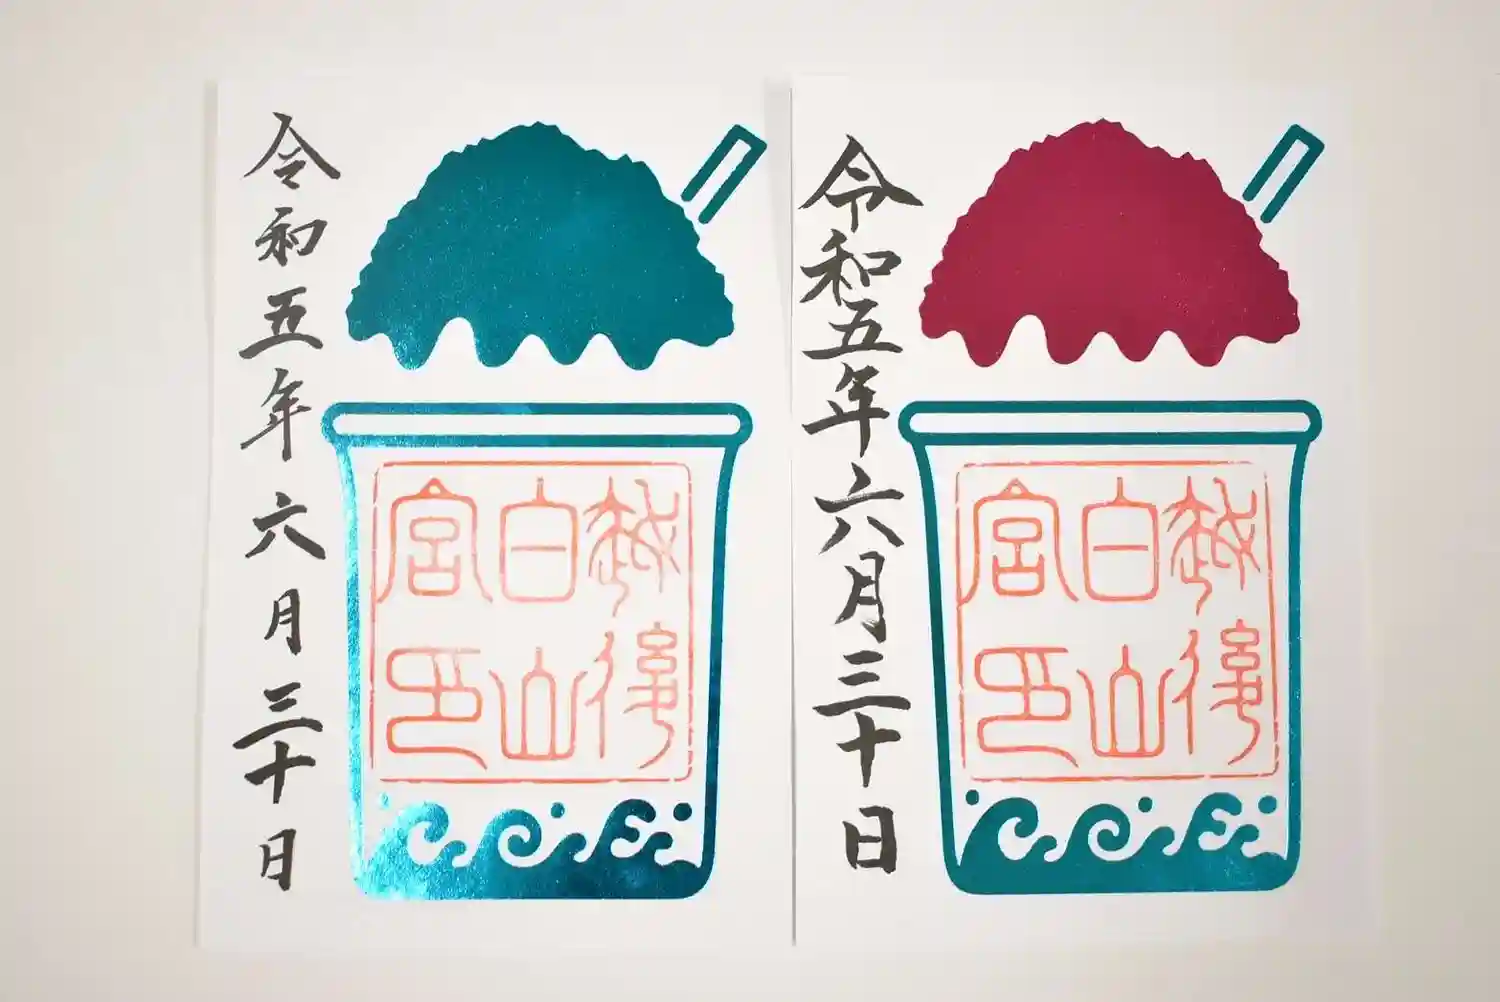 令和五年六月三十日
越後
白山
宮印
令和五年六月三十日
越後
白山
宮印